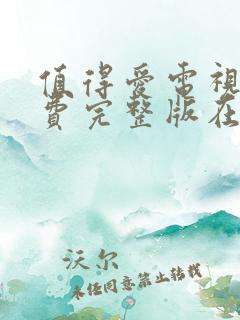 值得爱电视
费完整版在
沃尔
未经同意禁止转载